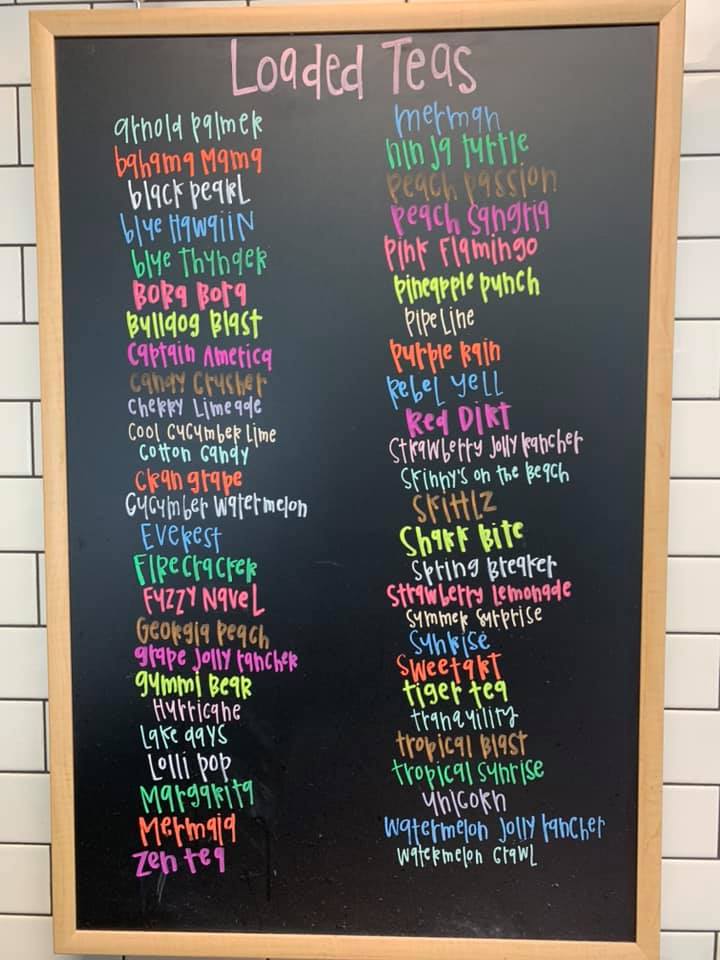 Loaded Teas
arnold palmer
bahama Mama
black pearl
blue Hawaiin
blue Thunder
Bora Bora
Bulldog Blast
Captain America
candy crusher
cherry Limeade
cool cucumber Lime
cotton candy
cran grape
cucumber watermelon
Everest
Firecracker
Fuzzy Navel
Georgia peach
grape Jolly rancher
gummi Bear
Hurricane
Lake days
Lolli pop
Margarita
Mermaid
Zen tea
merman
ninja turtle
peach passion
peach sangria
pink Flamingo
pineapple punch
pipeLine
purple Rain
Rebel yell
Red Dirt
Strawberry Jolly Rancher
Skinny's on the Beach
Skittlz
Shark Bite
Spring Breaker
Strawberry Lemonade
Summer Surprise
Sunrise
Sweetart
tiger tea
tranquility
tropical Blast
tropical sunrise
unicorn
watermelon Jolly rancher
watermelon crawl